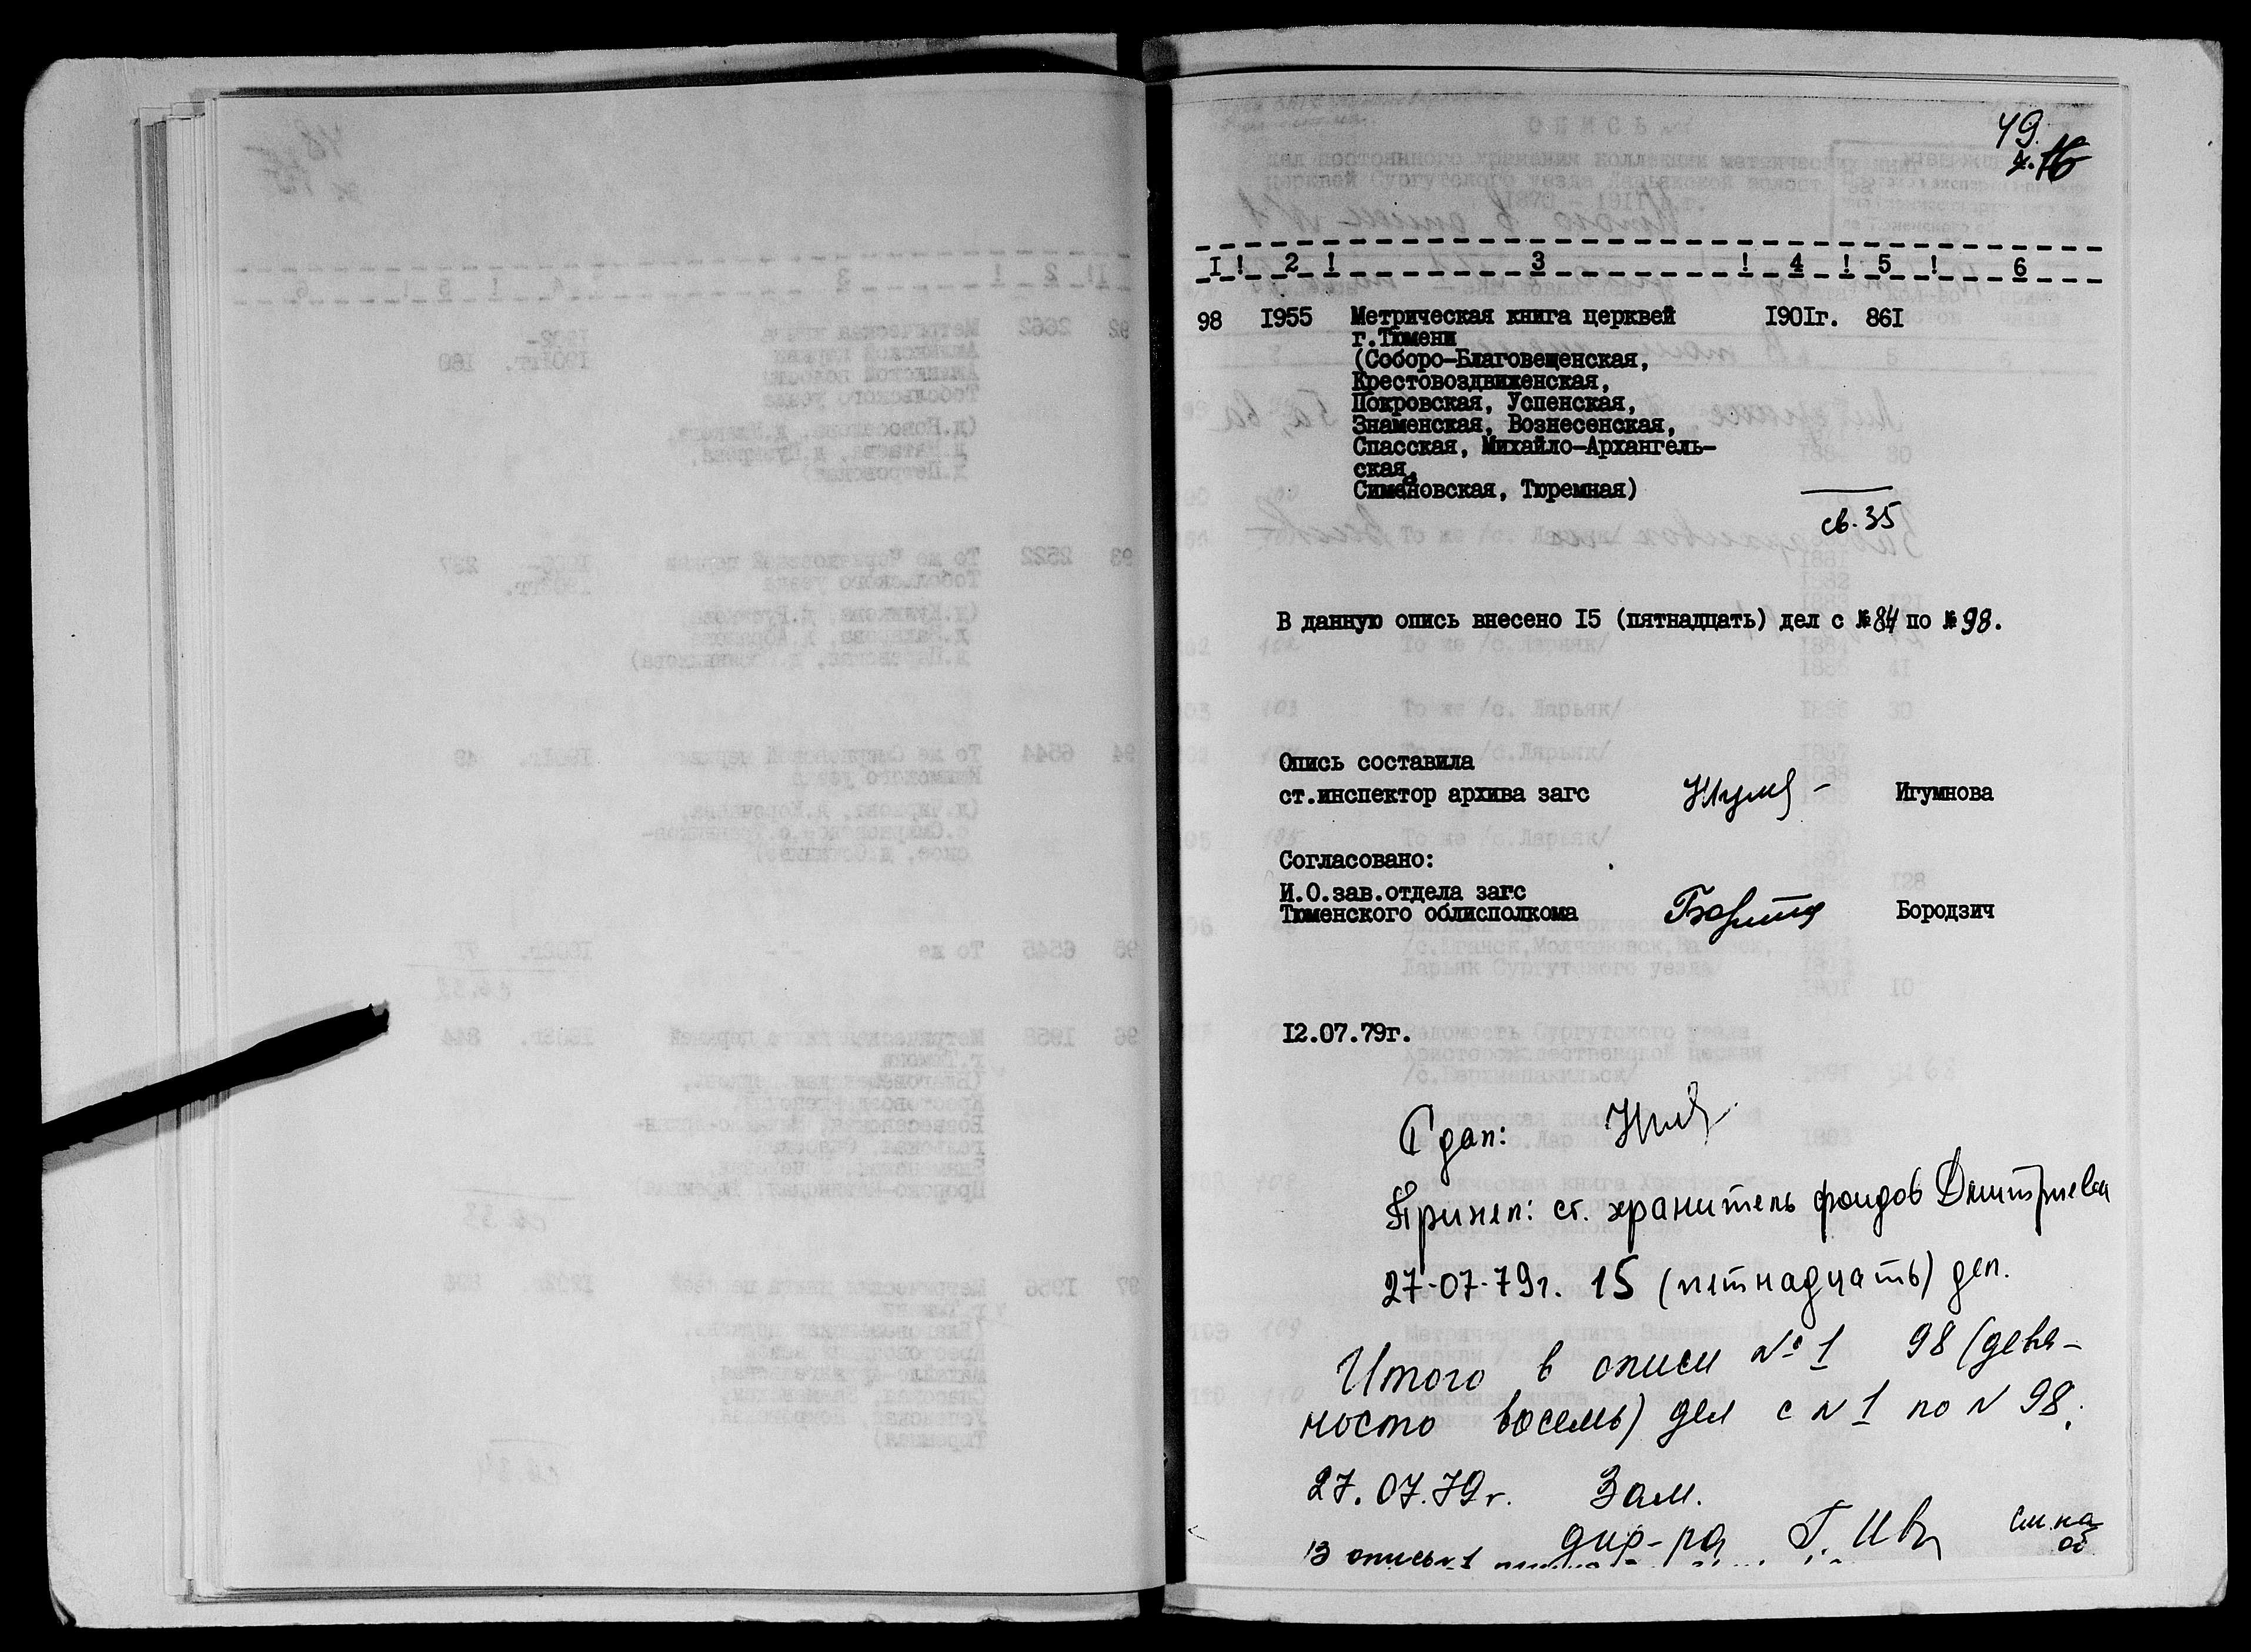 49
1 ! 2 ! 3 ! 4 ! 5 ! 6
98 1955 Метрическая книга церквей 1901г. 861
г.Тюмени
(Соборо-Благовещенская,
Крестовоздвиженская,
Покровская, Успенская,
Знаменская, Вознесенская,
Спасская, Михайло-Архангель-
ская,
Сименовская, Тюремная)
св. 35
В данную опись внесено 15 (пятнадцать) дел с №84 по №98.
Опись составила
ст.инспектор архива загс Игумнова
Согласовано:
И.О.зав.отдела загс
Тюменского облисполкома Бородзич
12.07.79г.
Сдал:
Принял: ст. хранитель фондов Дмитриева
27-07-79г. 15 (пятнадцать) дел.
Итого в описи №1 98 (девя-
носто восемь) дел с №1 по №98.
27.07.79г. Зам.
дир-ра
См. на
об.
В опись №1